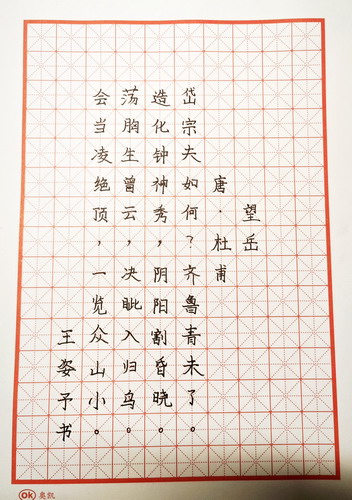 望岳
唐·杜甫
岱宗夫如何？齐鲁青未了。
造化钟神秀，阴阳割昏晓。
荡胸生曾云，决眦入归鸟。
会当凌绝顶，一览众山小。
王姿予书
OK 奥凯